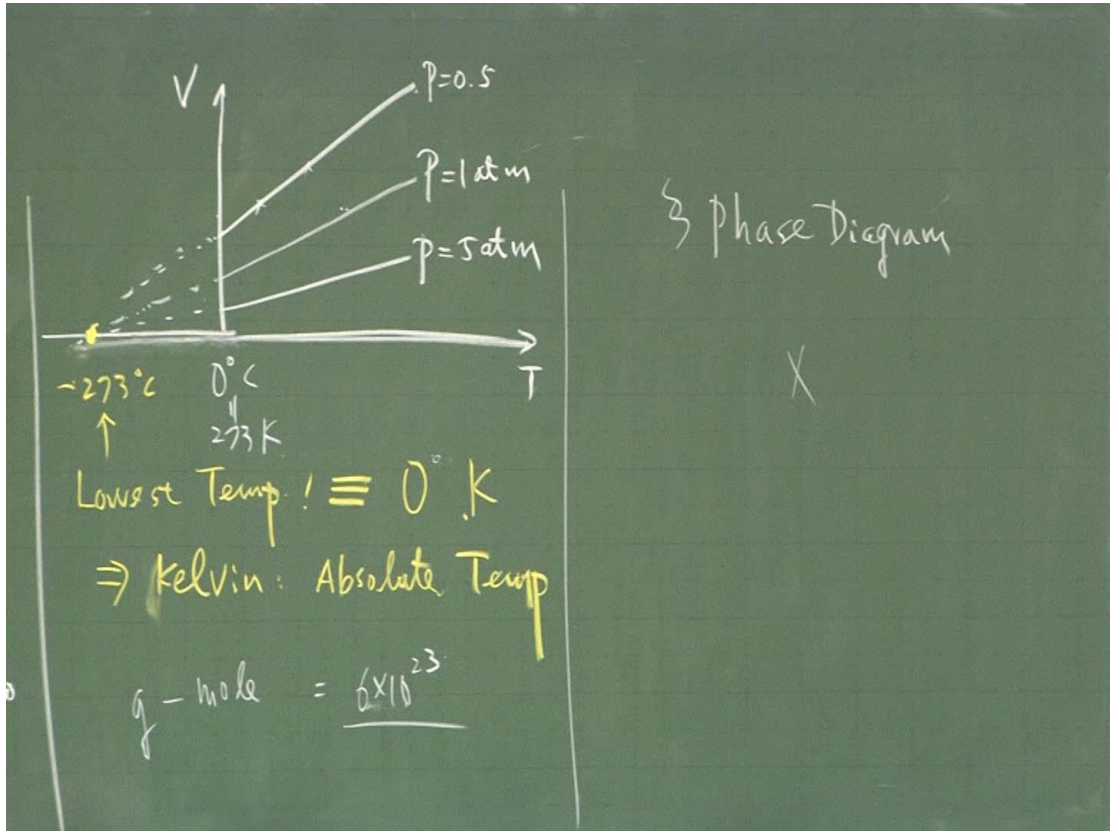 V
P=0.5
P=1atm
P=5atm
T
-273°C
0°C
||
273K
↑
Lowest Temp.! ≡ 0°K
⇒ Kelvin: Absolute Temp
g-mole = 6×10²³
§ Phase Diagram
X